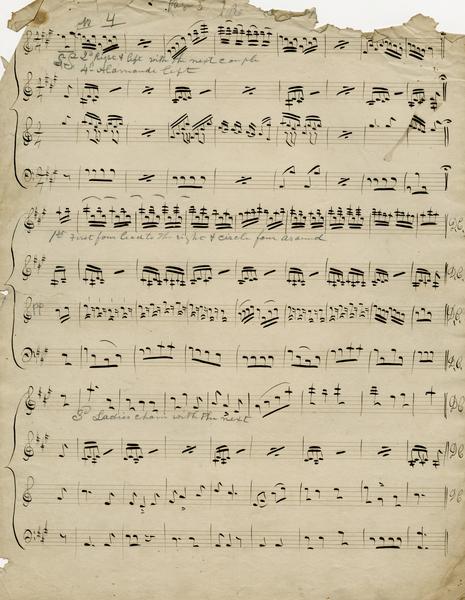 No 4
2d Right & left with the next couple
4th Alamande left
1st First four lead to the right & circle four around
D.C.
D.C.
pp
D.C.
D.C.
3d Ladies chain with the next
D.C.
D.C.
D.C.
D.C.